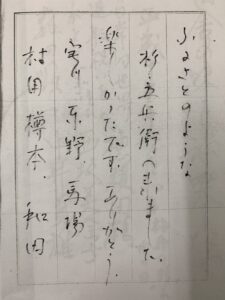 ふるさとのような
杉・五兵衛へ来ました。
楽しかったです。ありがとう。
宮川 東野 馬場
村田 樽本 和田